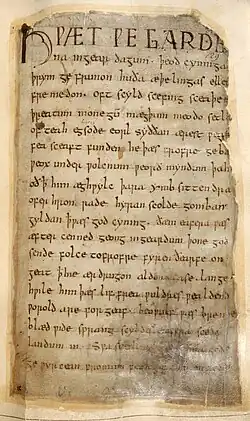 HǷÆT ǷE GARDE
na ingear dagum. þeod cyninga
þrym ge frunon huða æþelingas elle
fre medon. oft scyld scefing sceaþe
þreatum monegū mægþum meodo setla
of teah egsode eorl syððan ærest ƿear
fea sceaft funden he þæs frofre geba
ƿeox under ƿolcnum ƿeorð myndum þah
oð ꝥ him æghƿylc þara ymb sittendra
ofer hron rade hyran scolde gomban
gyldan þæt ƿæs god cyning. ðæm eafera ƿæs
æfter cenned geong ingeardum þone god
sende folce tofrofre fyren ðearfe on
geat ꝥ hie ær drugon aldor ase. lange
hƿile him þæs lif frea ƿuldres ƿealdend
ƿorold are for geaf. beoƿulf ƿæs breme
blæd ƿide sprang scyldes eafera scede
landum in. Sƿa sceal
ge ƿyrcean fromum feoh